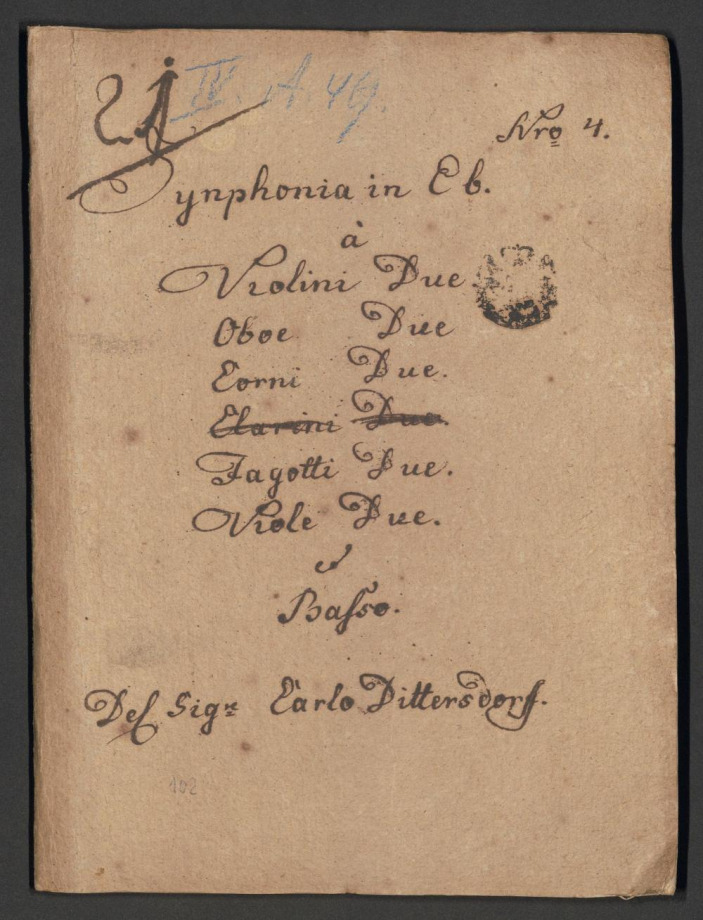 21
IV. A. 49.
Nro 4.
Synphonia in Eb.
à
Violini Due.
Oboe Due
Corni Due.
Clarini Due.
Fagotti Due.
Viole Due.
e
Basso.
Del Sigr Carlo Dittersdorf.
102